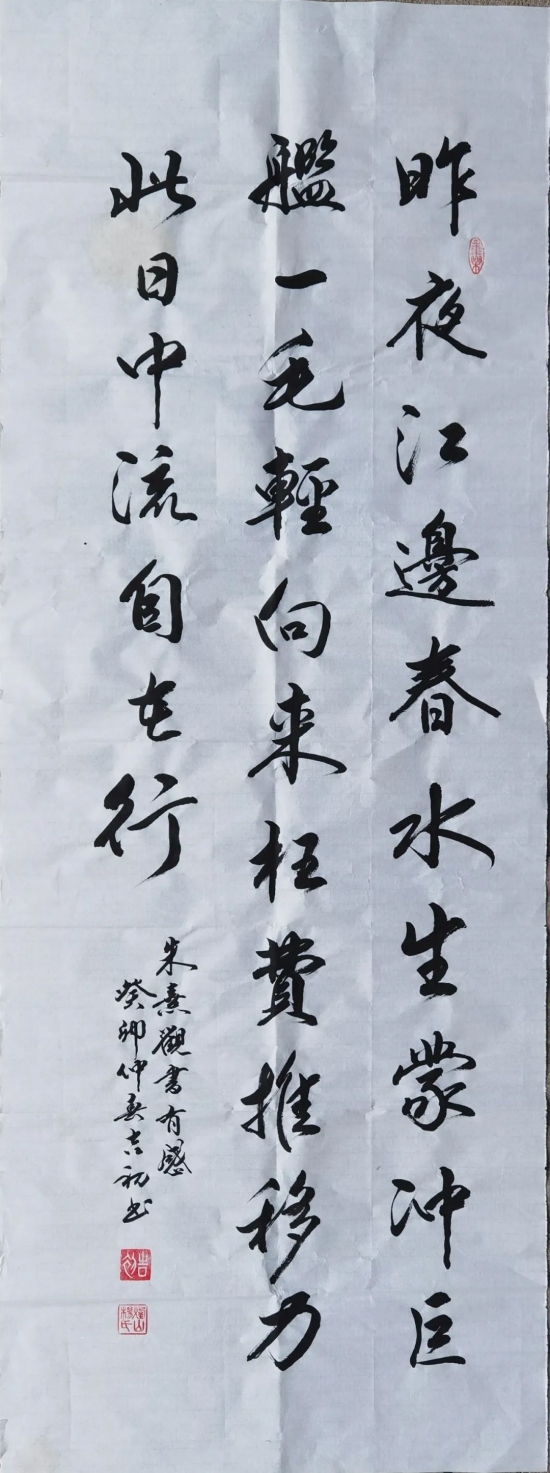 昨夜江邊春水生蒙冲巨
艦一毛輕向来枉費推移力
此日中流自在行
朱熹觀書有感
癸卯仲春吉初书
吉初